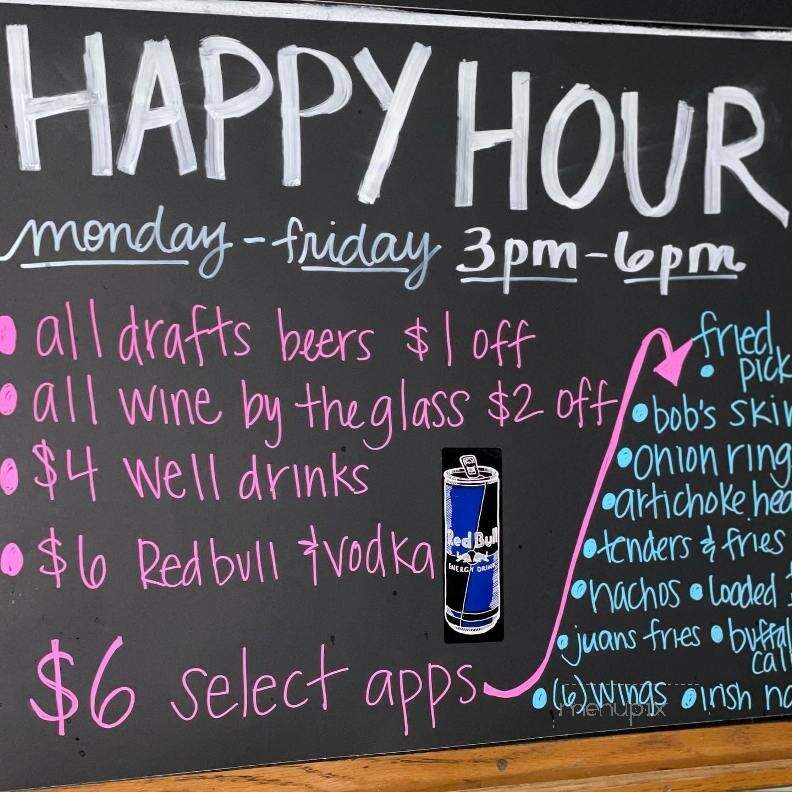 HAPPY HOUR
monday - friday 3pm - 6pm
• all drafts beers $1 off
• all wine by the glass $2 off
• $4 well drinks
• $6 Redbull & vodka
Red Bull
ENERGY DRINK
$6 select apps
fried
• pick
• bob's skin
• onion ring
• artichoke hea
• tenders & fries
• nachos • loaded
• juans fries • buffal
cal
• (6) wings • irish na
menupix